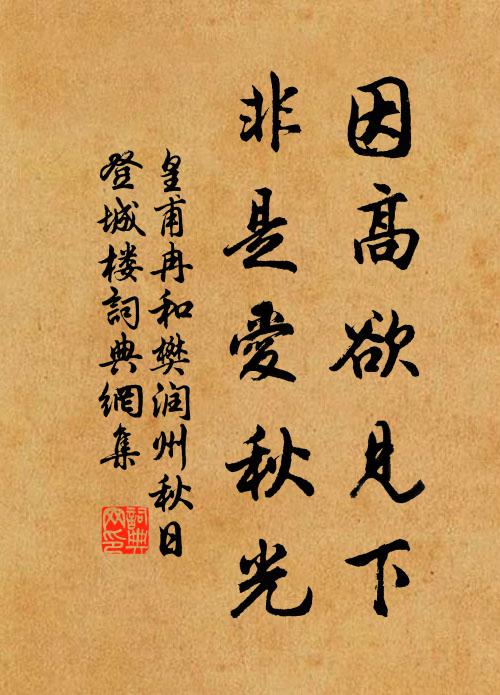 因高欲見下
非是愛秋光
皇甫冉和樊润州秋日
登城楼詞典網集
詞典